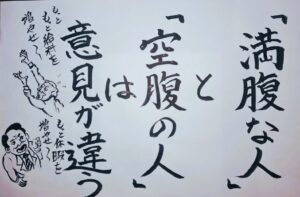 「満腹な人」
と
「空腹の人」
は
意見が違う
もっと
もっと給料を
増やせ〜
もっと休暇を
増やせ〜